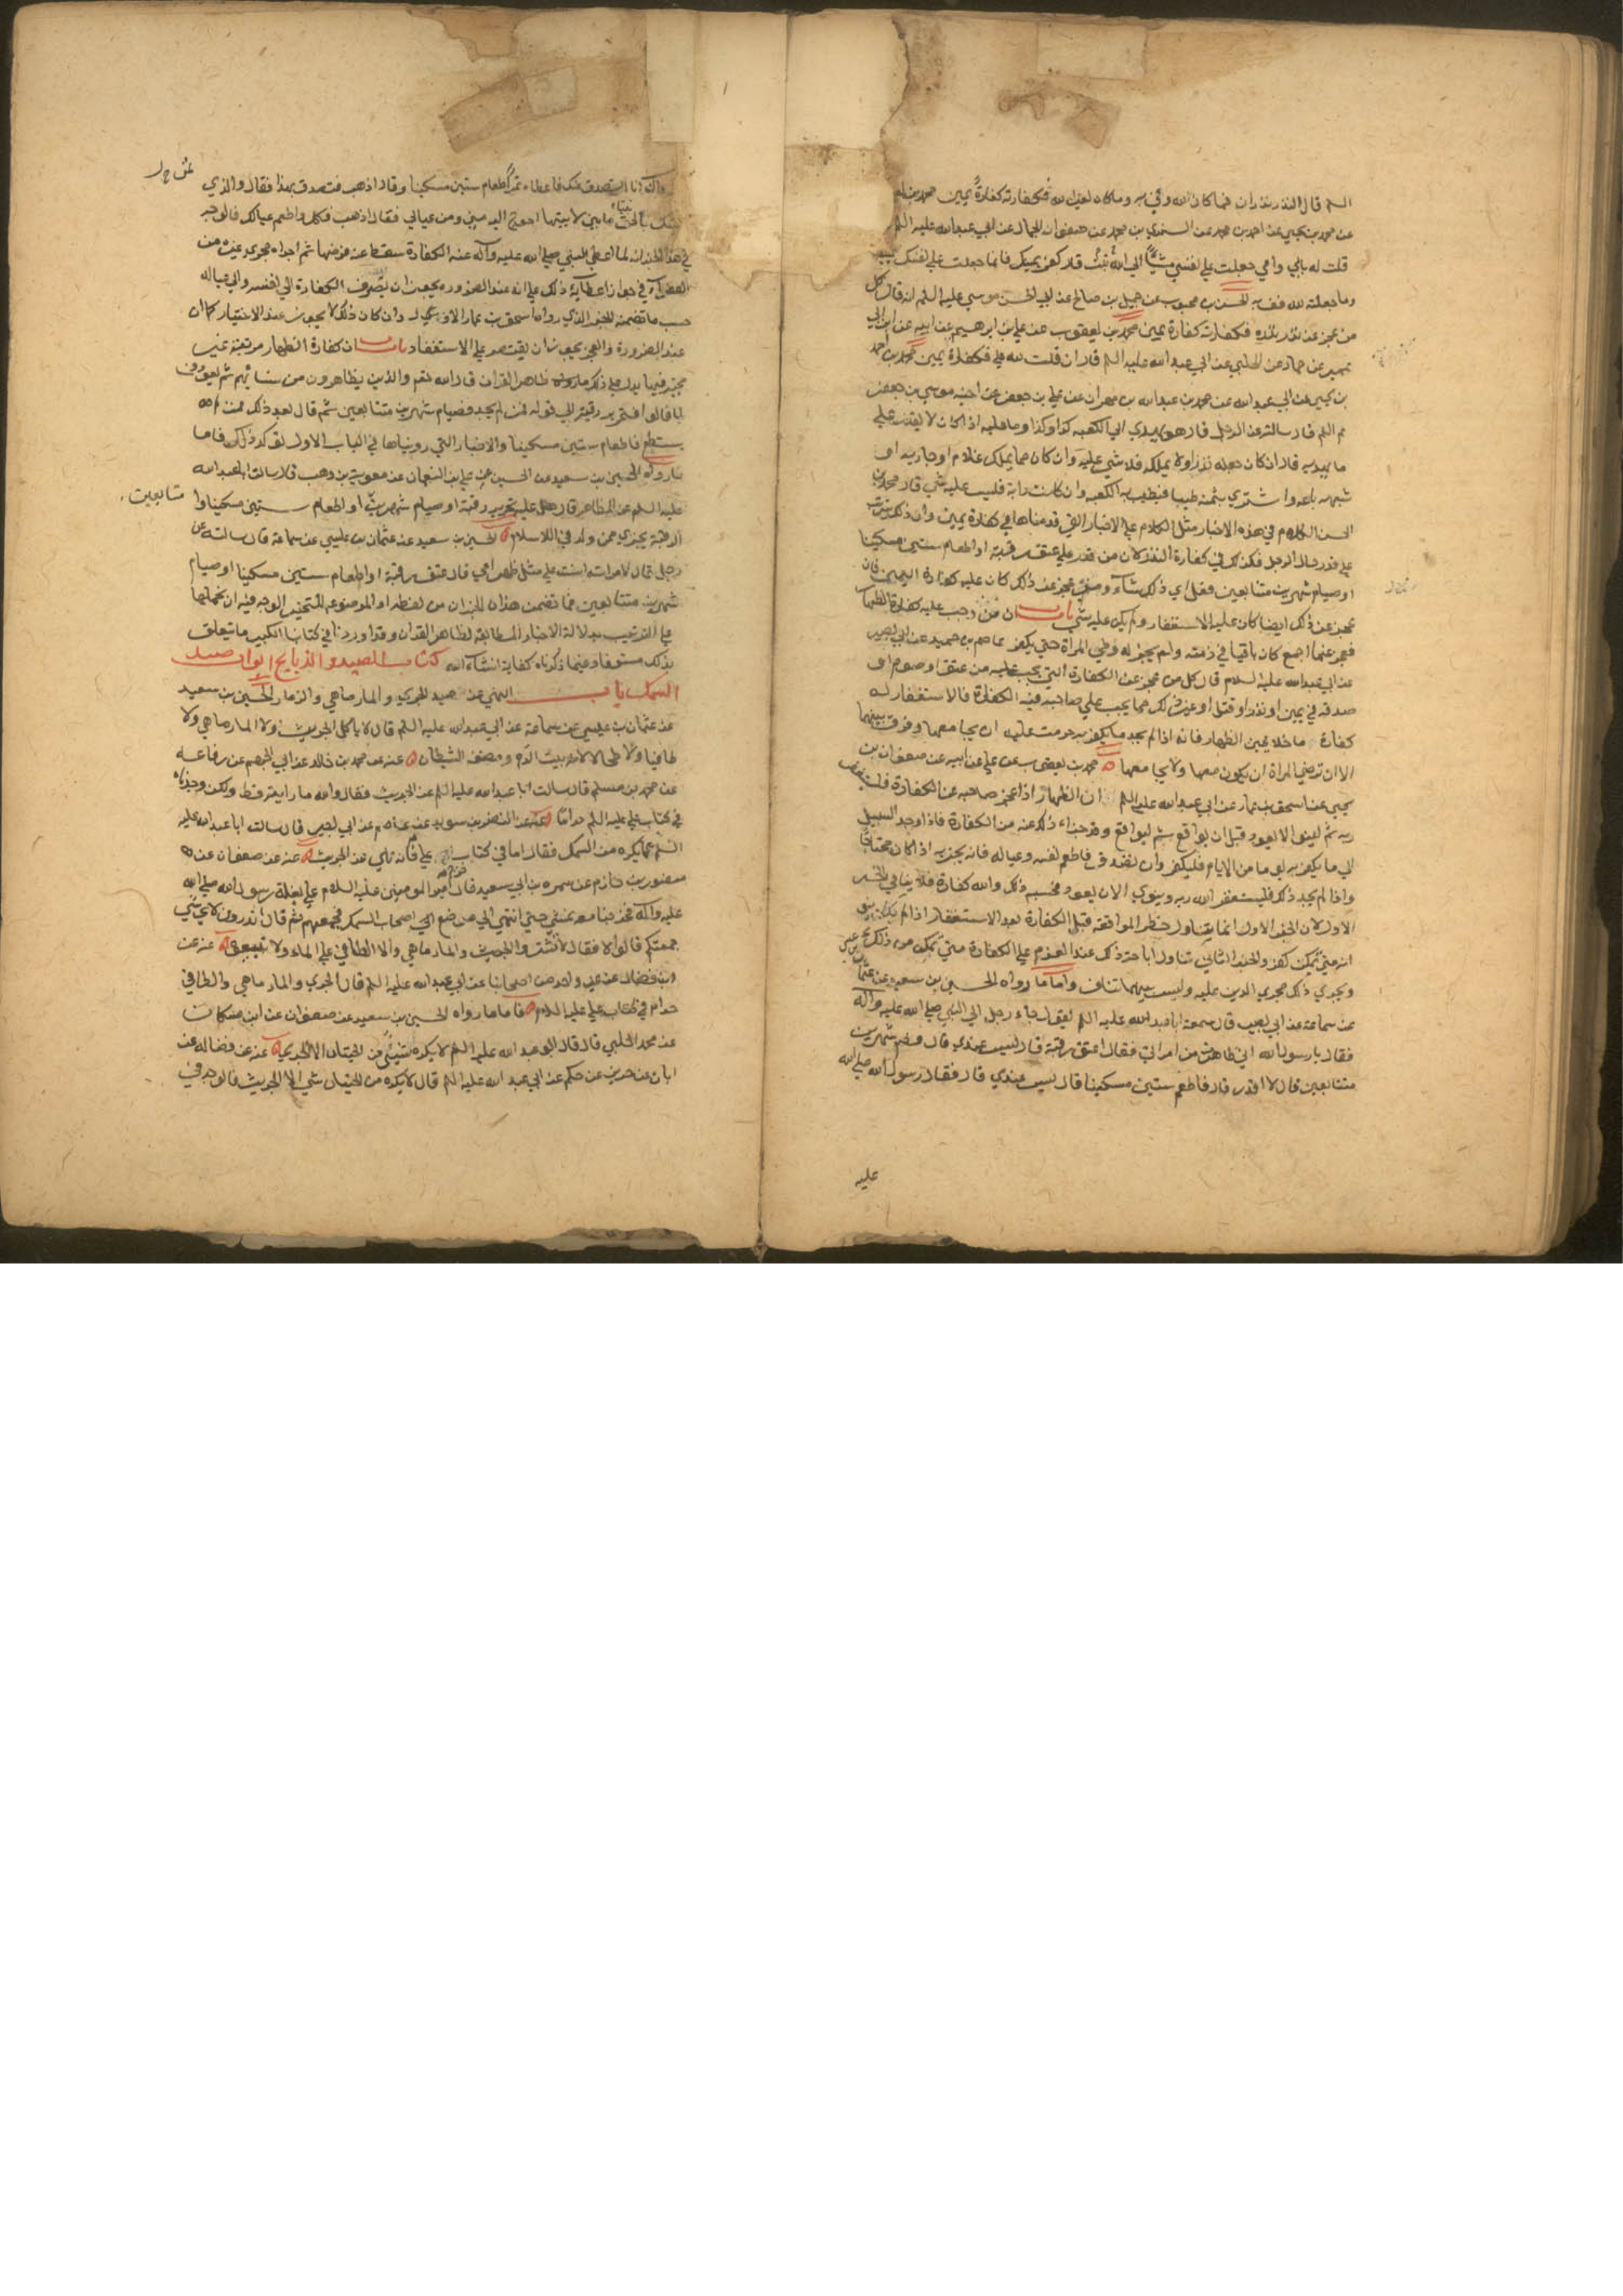 السلم قال النذر نذران فما كان لله وفي به وما كان لغير الله فكفارته كفارة يمين محمد بن
عن محمد بن يحيي عن احمد بن محمد عن السندي بن محمد عن صفوان الجمال عن ابي عبدالله عليه السلم
قلت له بابي وامي جعلت علي نفسي مشيا الي بيت الله قال كفر يمينك فانما جعلت علي نفسك يمينا
وما جعلته لله فف به الحسن بن محبوب عن جميل بن صالح عن ابي الحسن موسي عليه السلم انه قال كل
من عجز عن نذر نذره فكفارته كفارة يمين محمد بن يعقوب عن علي بن ابراهيم عن ابيه عن ابن ابي
عمير عن حماد عن الحلبي عن ابي عبدالله عليه السلم قال ان قلت لله علي فكفارة يمين محمد بن احمد
بن يحيي عن ابي عبدالله عن محمد بن عبدالله بن مهران عن علي بن جعفر عن اخيه موسي بن جعفر
عم السلم قال سالته عن الرجل قال هو يهدي الي الكعبه كذا وكذا وما عليه اذا كان لا يقدر علي
ما يهديه قال ان كان جعله نذرا ولا يملكه فلا شي عليه وان كان مما يملك غلام او جاريه او
شبهه باعه واشتري بثمنه طيبا فيطيب به الكعبه وان كانت دابة فليس عليه شي قال محمد بن
الحسن الكلام في هذه الاخبار مثل الكلام علي الاخبار التي قدمناها في كفارة يمين وان ذلك يترتب
علي قدر حال الرجل فكذلك في كفارة النذر كان من قدر علي عتق رقبة او اطعام ستين مسكينا
او صيام شهرين متتابعين فعل اي ذلك شآء ومتي عجز عن ذلك كان عليه كفارة اليمين فان
عجز عن ذلك ايضا كان عليه الاستغفار ولم يكن عليه شي باب ان من وجب عليه كفارة الظهار
فعجز عنها اجمع كان باقيا في ذمته ولم يجز له وطي المراة حتي يكفر عاصم بن حميد عن ابي بصير
عن ابي عبدالله عليه السلام قال كل من عجز عن الكفارة التي يجب عليه من عتق او صوم او
صدقه في يمين او نذر او قتل او غير ذلك مما يجب علي صاحبه فيه الكفارة فالاستغفار له
كفارة ما خلا يمين الظهار فانه اذا لم يجد ما يكفر به حرمت عليه ان يجامعها وفرق بينهما
الا ان ترضي المراة ان يكون معها ولا يجامعها محمد بن يعقوب عن علي عن ابيه عن صفوان بن
يحيي عن اسحق بن عمار عن ابي عبدالله عليه السلم ان الظهار اذا عجز صاحبه عن الكفارة فليستغفر
ربه ثم لينو الا يعود قبل ان يواقع ثم ليواقع وقد جزاء ذلك عنه من الكفارة فاذا وجد السبيل
الي ما يكفر به يوما من الايام فليكفر وان تصدق فاطعم نفسه وعياله فانه يجزيه اذا كان محتاجا
واذا لم يجد ذلك فليستغفر الله ربه وينوي الا ان يعود فحسبه ذلك والله كفارة فلا ينافي الخبر
الاول لان الخبر الاول انما يتناول حظر المواقعة قبل الكفارة بعد الاستغفار اذا لم
انه متي تمكن كفر والخبر الثاني تناول اباحة ذلك عند العزم علي الكفارة متي تمكن من ذلك
ويجري ذلك مجري الدين عليه وليس بينهما تناف واما ما رواه الحسين بن سعيد عن عثمان بن عيسي
عن سماعة عن ابي بصير قال سمعت ابا عبدالله عليه السلم يقول جاء رجل الي النبي صلي الله عليه وآله
فقال يا رسول الله اني ظاهرت من امراتي فقال اعتق رقبة قال ليس عندي قال فصم شهرين
متتابعين قال لا اقدر قال فاطعم ستين مسكينا قال ليس عندي قال فقال رسول الله صلي الله
عليه
وآله انا اتصدق عنك فاعطاه تمرا لاطعام ستين مسكينا وقال اذهب فتصدق بهذا فقال والذي
بعثك بالحق نبيا ما بين لابيتها احوج اليه مني ومن عيالي فقال اذهب فكل واطعم عيالك فالوجه
في هذا الخبر انه لما اعطي النبي صلي الله عليه وآله عنه الكفارة سقط عنه فرضها ثم اجراه مجري غيره من
الفقراء في جواز اعطايه ذلك علي انه عند الضرورة يجوز ان يصرف الكفارة الي نفسه والي عياله
حسب ما تضمنه الخبر الذي رواه اسحق بن عمار الاول وان كان ذلك لا يجوز عند الاختيار كما ان
عند الضرورة والعجز يجوز ان يقتصر علي الاستغفار باب ان كفارة الظهار مرتبة غير
مخير فيها يدل علي ذلك ظاهر القران قال الله تعم والذين يظاهرون من نسائهم ثم يعودون
لما قالوا فتحرير رقبة الي قوله فمن لم يجد فصيام شهرين متتابعين ثم قال بعد ذلك فمن لم
يستطع فاطعام ستين مسكينا والاخبار التي رويناها في الباب الاول تؤكد ذلك فاما
ما رواه الحسين بن سعيد عن الحسين عن علي بن النعمان عن معوية بن وهب قال سالت ابا عبدالله
عليه السلم عن المظاهر قال عليه تحرير رقبة او صيام شهرين او اطعام ستين مسكينا و
متتابعين
الرقبة يجزي ممن ولد في الاسلام الحسين بن سعيد عن عثمان بن عيسي عن سماعة قال سالته عن
رجل قال لامراته انت علي مثل ظهر امي قال عتق رقبة او اطعام ستين مسكينا او صيام
شهرين متتابعين فما تضمن هذان الخبران من لفظه او الموضوعه للتخيير الوجه فيه ان نحملها
علي الترتيب بدلالة الاخبار المطابقة لظاهر القران وقد اوردنا في كتابنا الكبير ما يتعلق
بذلك مستوفا وفيما ذكرناه كفاية انشاء الله كتاب الصيد والذبايح ابواب صيد
السمك باب النهي عن صيد الجري والمارماهي والزمار الحسين بن سعيد
عن عثمان بن عيسي عن سماعة عن ابي عبدالله عليه السلم قال لا ياكل الجريث ولا المارماهي ولا
طافيا ولا طحالا لانه بيت الدم ومضغة الشيطان عنه عن محمد بن خالد عن ابي الجهم عن رفاعه
عن محمد بن مسلم قال سالت ابا عبدالله عليه السلم عن الجريث فقال والله ما رايته قط ولكن وجدناه
في كتاب علي عليه السلم حراما عنه عن النضر بن سويد عن عاصم عن ابي بصير قال سالت ابا عبدالله عليه
السلم عما يكره من السمك فقال اما في كتاب علي فانه نهي عن الجريث عنه عن صفوان عن
منصور بن حازم عن سمرة بن ابي سعيد قال خرج امير المومنين عليه السلام علي بغلة رسول الله صلي الله
عليه وآله فخرجنا معه نمشي حتي انتهي الي موضع اصحاب السمك فجمعهم ثم قال اتدرون لاي شي
جمعتكم قالوا لا فقال لا تشتروا الجريث والمارماهي ولا الطافي علي الماء ولا تبيعوه عنه عن
ابن فضال عن غير واحد من اصحابنا عن ابي عبدالله عليه السلم قال الجري والمارماهي والطافي
حرام في كتاب علي عليه السلام فاما ما رواه الحسين بن سعيد عن صفوان عن ابن مسكان
عن محمد الحلبي قال قال ابو عبدالله عليه السلم لا يكره شيئ من الحيتان الا الجري عنه عن فضاله عن
ابان عن حريز عن حكم عن ابي عبدالله عليه السلم قال لا يكره من الحيتان شي الا الجريث فالوجه في